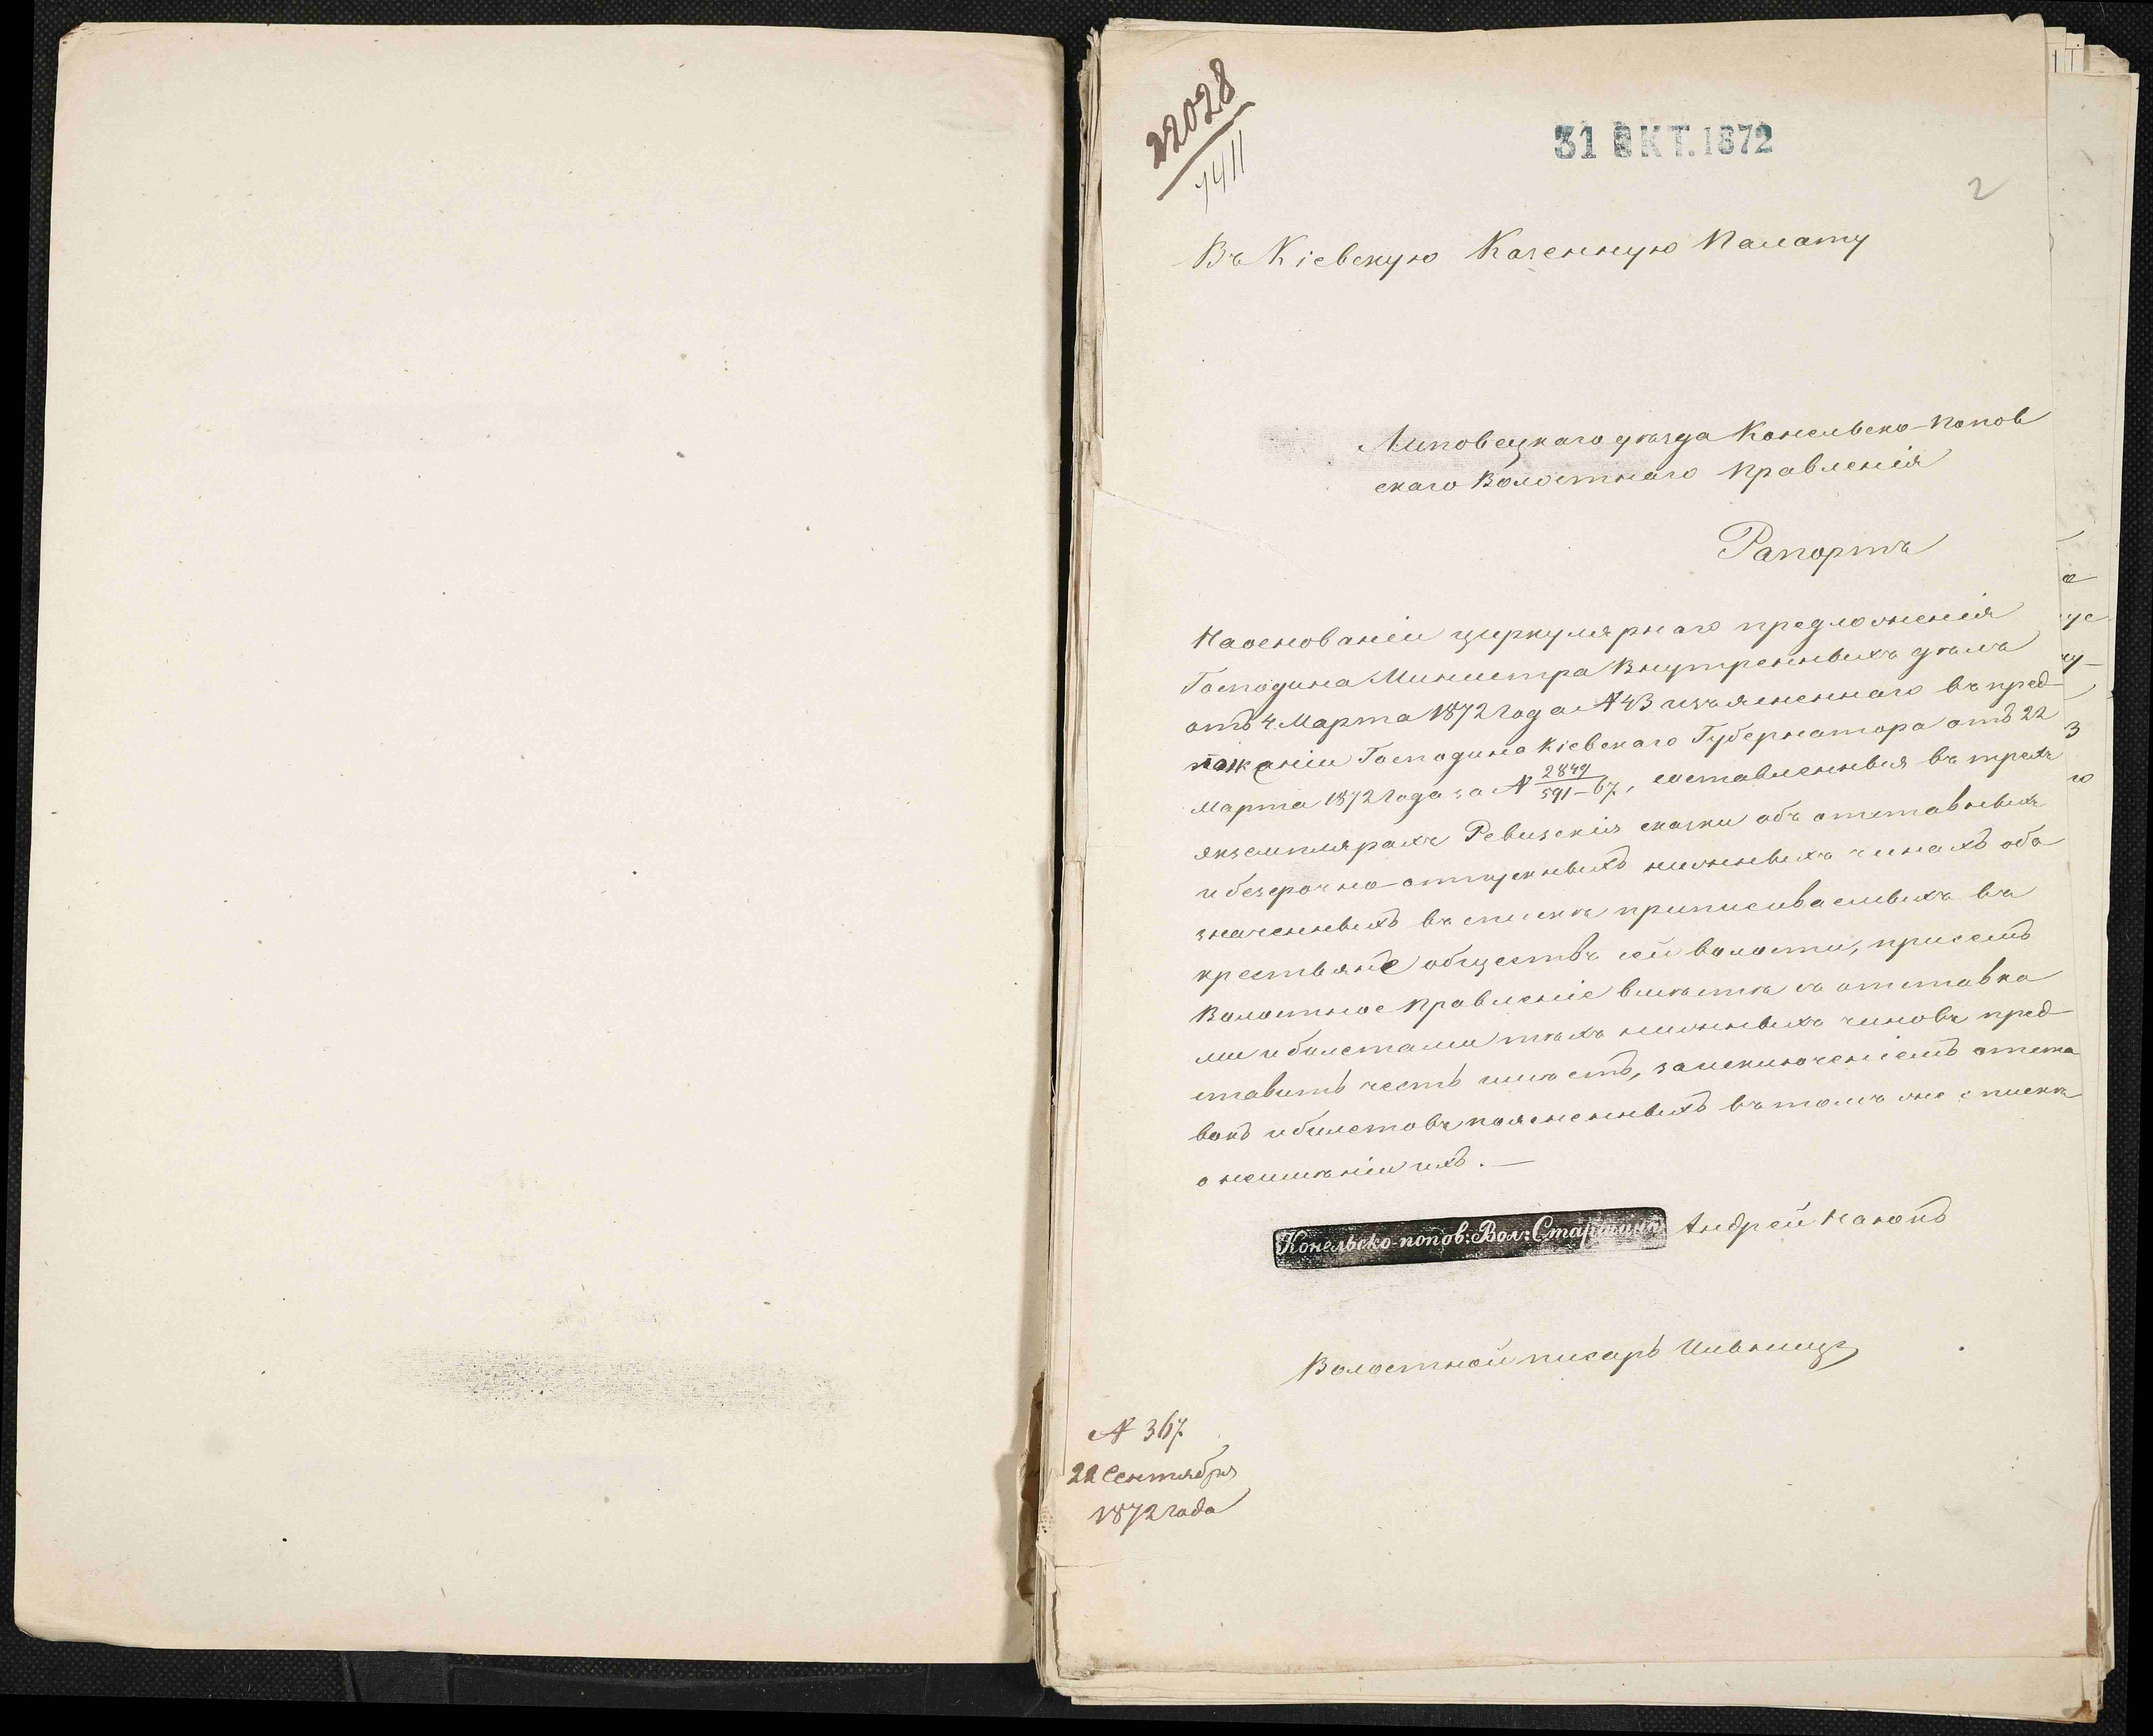 22028
7411
31 ОКТ. 1872
2
Въ Кіевскую Казенную Палату
Липовецкаго уѣзда Конельско-Попов
скаго Волостнаго Правленія
Рапортъ
На основаніи циркулярнаго предложенія
Господина Министра Внутреннихъ дѣлъ
отъ 4 Марта 1872 года № 43 изъясненнаго въ пред
Господина Кіевскаго Губернатора отъ 22
Марта 1872 года за № 2849/591-67, составленныя въ трехъ
экземплярахъ Ревизскія сказки объ отставныхъ
и безсрочно-отпускныхъ нижныхъ чинахъ обо
значенныхъ въ спискѣ приписываемыхъ въ
крестьянс обществъ сей волости, присемъ
Волостное Правленіе вмѣстѣ съ отставка
ми и билетами тѣхъ нижныхъ чиновъ пред
ставить честь имѣетъ, заисключеніемъ отста
вокъ и билетовъ поясненныхъ въ томъ же спискѣ
о неимѣніи ихъ. —
Конельско-попов: Вол: Старшина Андрей
Волостной писарь
№ 367
22 Сентября
1872 года